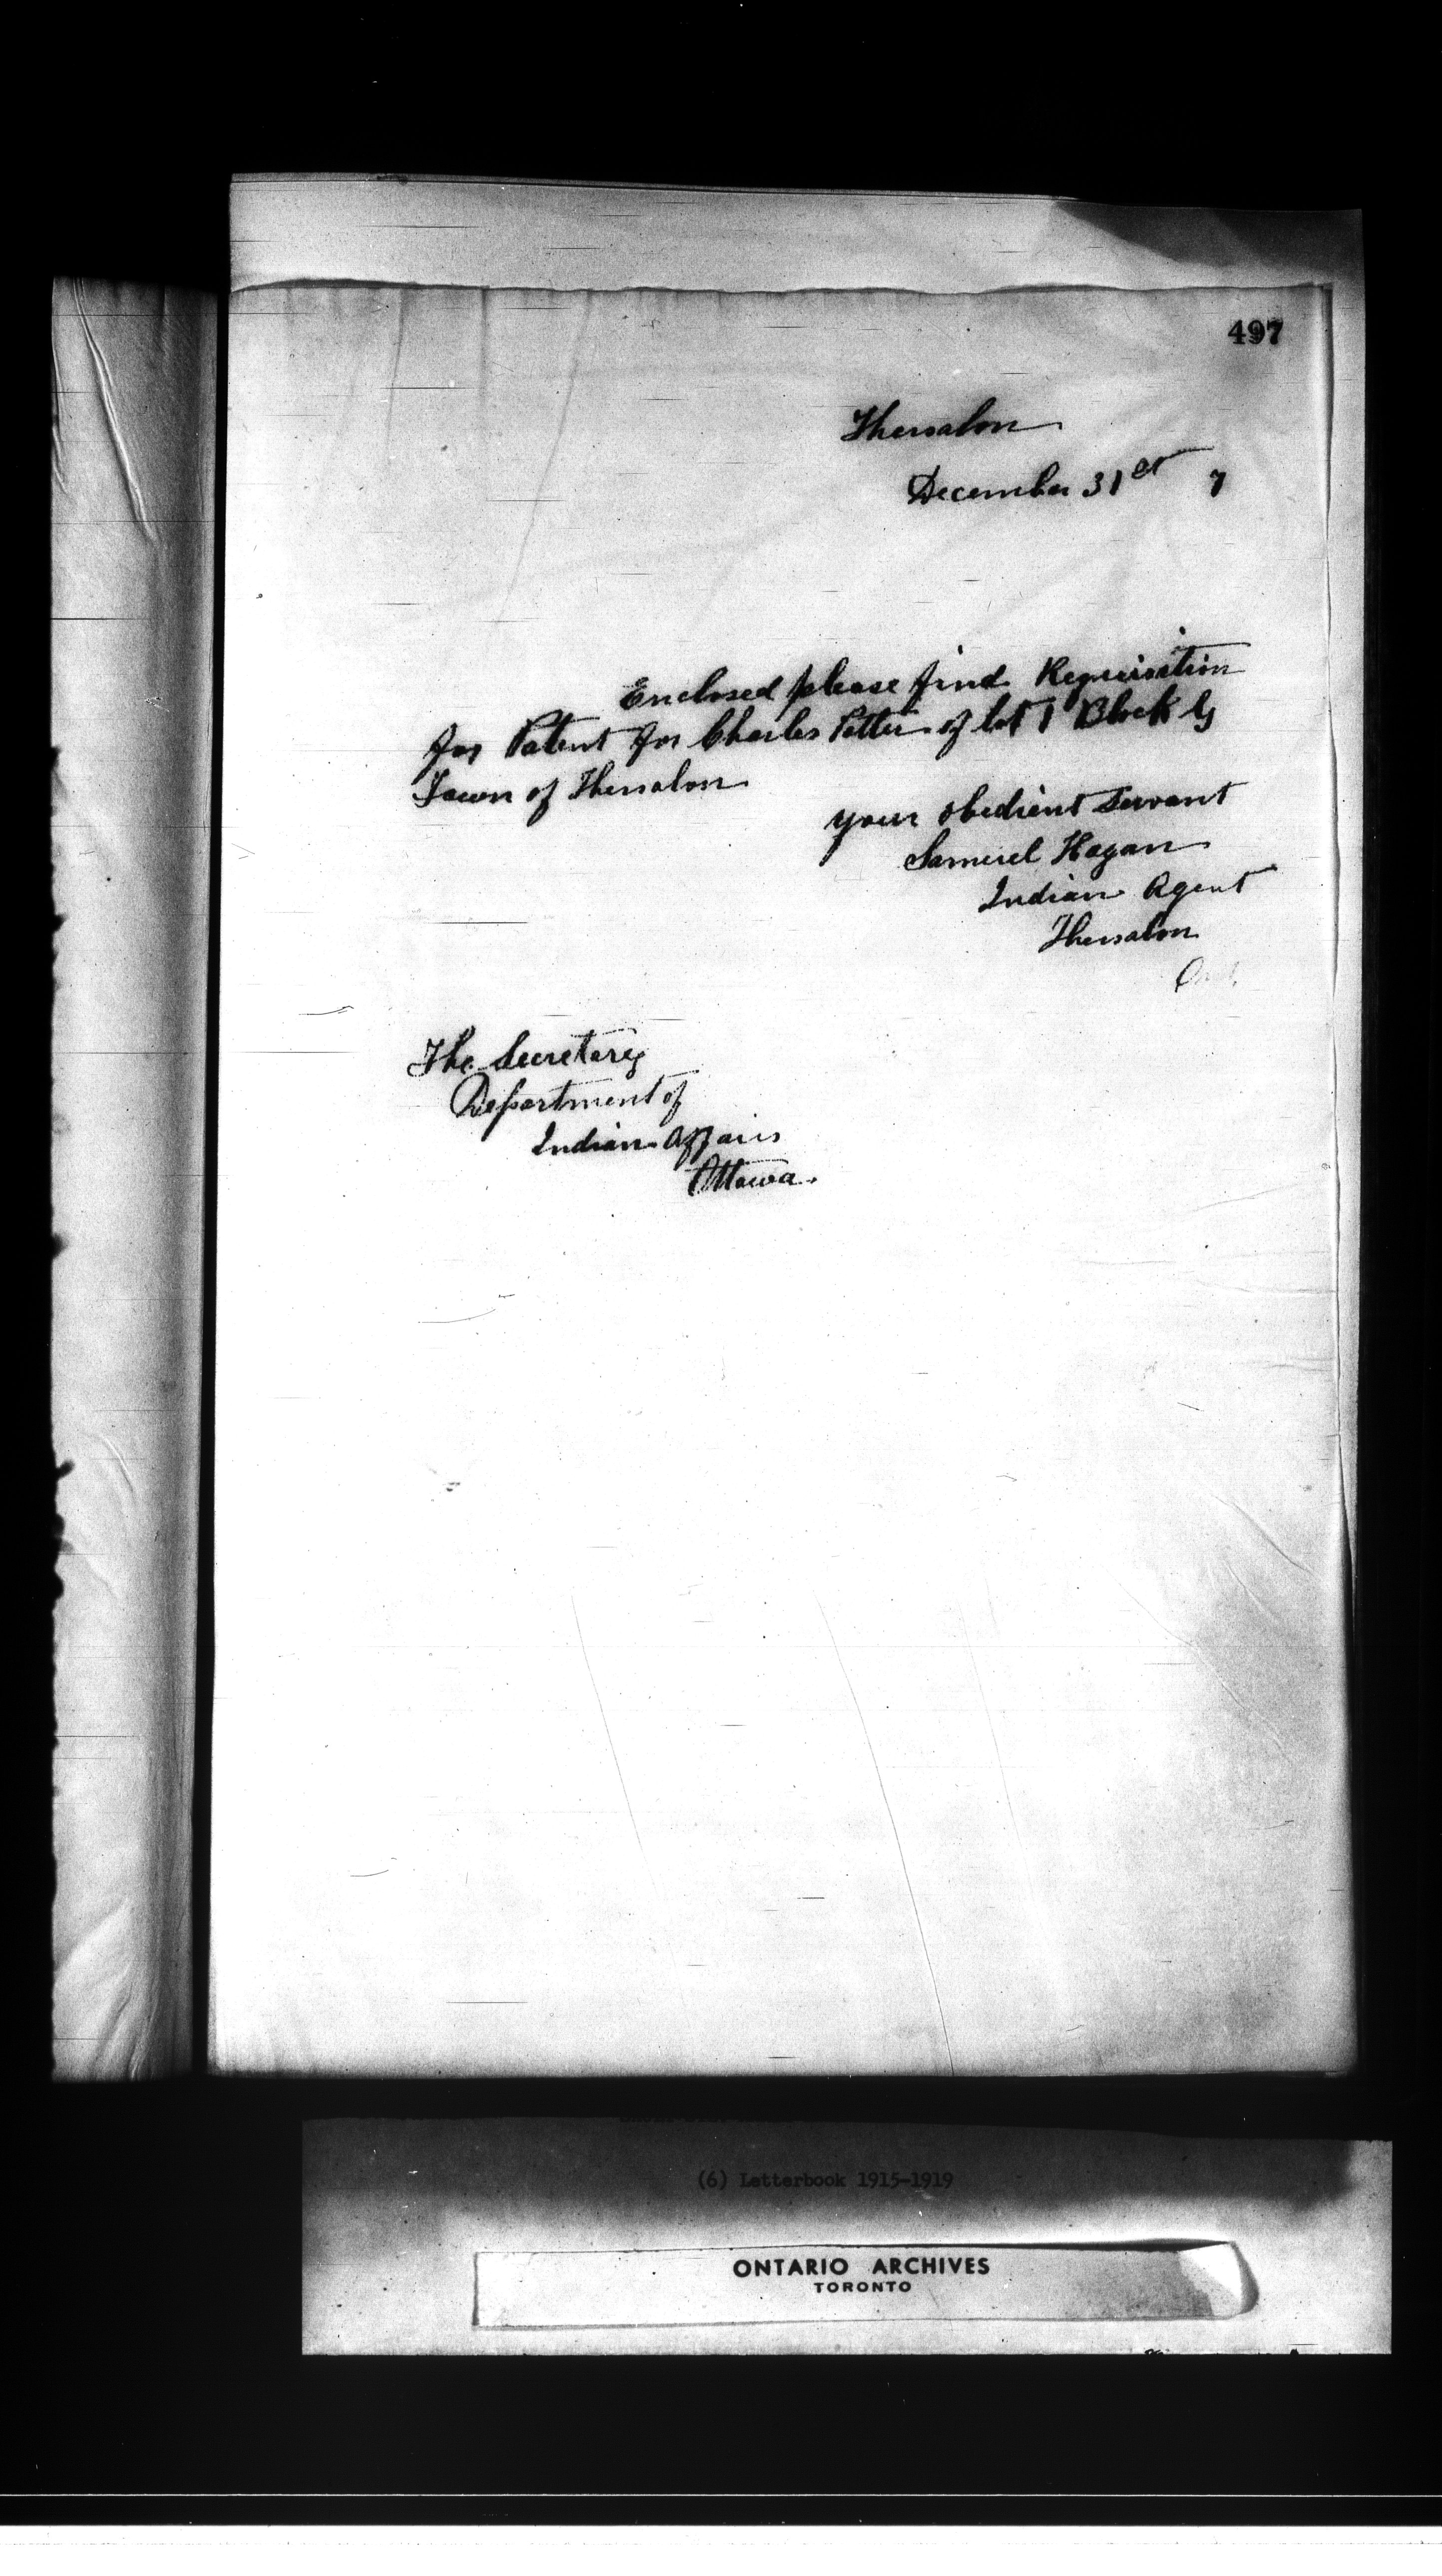 497
Thessalon
December 31st 7
Enclosed please find Requisition
for Patent for Charles Potter of lot 1 Block G
Town of Thessalon
your obedient Servant
Samuel Hagan
Indian Agent
Thessalon
Ont.
The Secretary
Department of
Indian Affairs
Ottawa.
(6) Letterbook 1915-1919
ONTARIO ARCHIVES
TORONTO